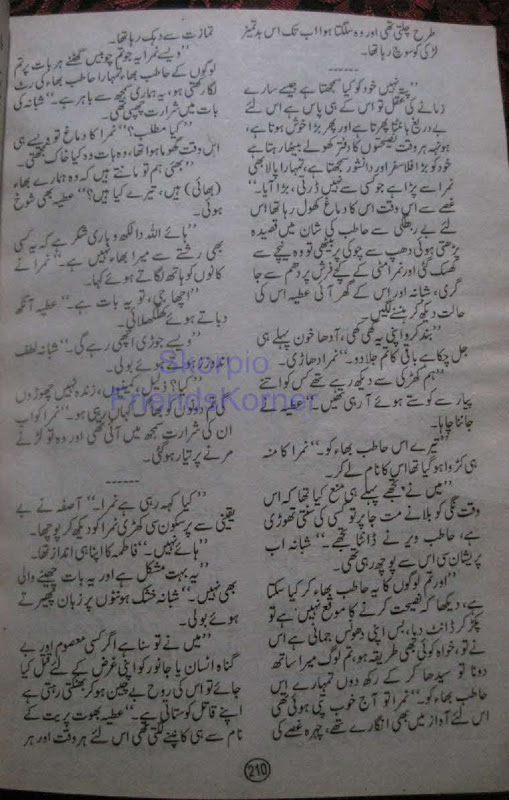 طرح چلتی تھی اور وہ سلگتا ہوا اب تک اس بدتمیز
لڑکی کو سوچ رہا تھا۔
------
’’پتہ نہیں خود کو کیا سمجھتا ہے جیسے سارے
زمانے کی عقل تو اس کے ہی پاس ہے اس لئے
بے دریغ بانٹتا پھرتا ہے اور پھر بڑا خوش ہوتا ہے،
ہونہہ ہر وقت نصیحتوں کا دفتر کھولے بیٹھا رہتا ہے
خود کو بڑا فلاسفر اور دانشور سمجھتا ہے، تمہارا پالا بھی
نمرا سے پڑا ہے جو کسی سے نہیں ڈرتی، بڑا آیا۔‘‘
غصے سے اس وقت اس کا دماغ کھول رہا تھا اس
لئے بے ربطگی سے حاطب کی شان میں قصیدہ
پڑھتی ہوئی دھپ سے چوکی پر بیٹھی تو وہ نیچے سے
کھسک گئی اور نمرا مٹی کے کچے فرش پر دھم سے جا
گری، شبانہ اور اس کے گھر آئی عطیہ اس کی
حالت دیکھ کر ہنسنے لگیں۔
’’بند کرو اپنی یہ کھی کھی، آدھا خون پہلے ہی
جل چکا ہے باقی کا تم جلا دو۔‘‘ نمرا دھاڑی۔
’’ہم کھڑکی سے دیکھ رہے تھے کس کو اتنے
پیار سے کوستے ہوئے آ رہی تھیں۔‘‘ عطیہ نے
جاننا چاہا۔
’’تیرے اس حاطب بھاء کو۔‘‘ نمرا کا منہ
ہی کڑوا ہو گیا تھا اس کا نام لے کر۔
’’میں نے تجھے پہلے ہی منع کیا تھا کہ اس
وقت گگی کو بلانے مت جا پر تو کسی کی سنتی تھوڑی
ہے، حاطب ویر نے ڈانٹا تجھے۔‘‘ شبانہ اب
پریشان سی اس سے پوچھ رہی تھی۔
’’اور تم لوگوں کا یہ حاطب بھاء کر کیا سکتا
ہے، دیکھا کہ نصیحت کرنے کا موقع نہیں ہے تو
پکڑ کر ڈانٹ دیا، بس اپنی دھونس جمانی ہے اس
نے تو، خواہ کوئی بھی طریقہ ہو، تم لوگ میرا ساتھ
دو نا تو سیدھا کر کے رکھ دوں تمہارے اس
حاطب بھاء کو۔‘‘ نمرا تو آج خوب تپی ہوئی تھی
اس لئے آواز میں بھی انگارے تھے، چہرہ غصے کی
تمازت سے دہک رہا تھا۔
’’ویسے نمرا یہ جو تم چوبیس گھنٹے ہر بات پر تم
لوگوں کے حاطب بھاء، تمہارا حاطب بھاء کی رٹ
لگا رکھتی ہو، یہ ہماری سمجھ سے باہر ہے۔‘‘ شبانہ کی
بات میں شرارت چھپی تھی۔
’’کیا مطلب؟‘‘ نمرا کا دماغ تو ویسے ہی
اس وقت گھوما ہوا تھا، وہ بات وہ کیا خاک سمجھتی۔
’’بھئی ہم تو مانتے ہیں کہ وہ ہمارے بھاء
(بھائی) ہیں، تیرے کیا ہیں؟‘‘ عطیہ بھی شوخ
ہوئی۔
’’ہائے اللہ دا لکھ واری شکر ہے کہ یہ کسی
بھی رشتے سے میرا بھاء نہیں ہے۔‘‘ نمرا نے
کانوں کو ہاتھ لگاتے ہوئے کہا۔
’’اچھا جی، تو یہ بات ہے۔‘‘ عطیہ آنکھ
دباتے ہوئے کھلکھلائی۔
’’ویسے جوڑی اچھی رہے گی۔‘‘ شبانہ لطف
اندوز ہوتے ہوئے بولی۔
’’کیا؟ ذلیل، کمینیوں، زندہ نہیں چھوڑوں
گی تم دونوں کو بھاگ کہاں رہی ہو۔‘‘ نمرا کو اب
ان کی شرارت سمجھ میں آئی تھی اور وہ تو لڑنے
مرنے پر تیار ہو گئی۔
------
’’کیا کہہ رہی ہے نمرا۔‘‘ آصفہ نے بے
یقینی سے پرسکون سی کھڑی نمرا کو دیکھ کر پوچھا۔
’’ہائے نہیں۔‘‘ فاطمہ کا اپنا ہی انداز تھا۔
’’یہ بہت مشکل ہے اور یہ بات چھپنے والی
بھی نہیں۔‘‘ شبانہ خشک ہونٹوں پر زبان پھیرتے
ہوئے بولی۔
’’میں نے تو سنا ہے اگر کسی معصوم اور بے
گناہ انسان یا جانور کو اپنی غرض کے لئے قتل کیا
جائے تو اس کی روح بے چین ہو کر بھٹکتی رہتی ہے
اپنے قاتل کو ستاتی ہے۔‘‘ عطیہ بھوت پریت کے
نام سے ہی کانپنے لگتی تھی اس لئے ہر وقت اور ہر
210
Skorpio
FriendsKorner